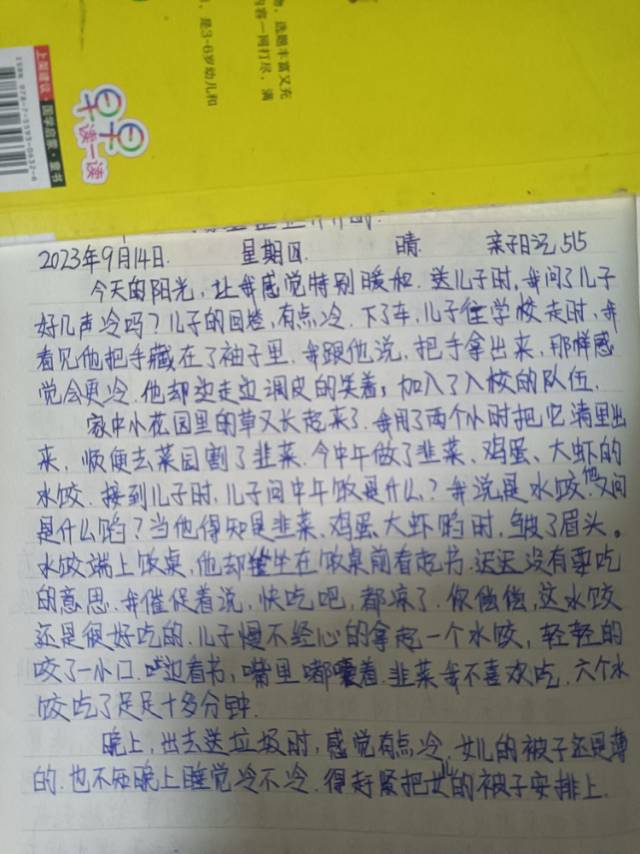 物，选题丰富又充
内容一网打尽，满
，是3-6岁幼儿和
上架建议·国学启蒙·童书
早早读一读
2023年9月14日. 星期四. 晴. 亲子日记 515
今天的阳光，让我感觉特别暖和. 送儿子时，我问了儿子
好几声冷吗？儿子的回答，有点冷. 下了车，儿子往学校走时，我
看见他把手藏在了袖子里. 我跟他说，把手拿出来，那样感
觉会更冷. 他却边走边调皮的笑着，加入了入校的队伍.
家中小花园里的草又长起来了. 我用了两个小时把它清理出
来，顺便去菜园割了韭菜. 今中午做了韭菜、鸡蛋、大虾的
水饺. 接到儿子时，儿子问中午饭是什么？我说是水饺. 他又问
是什么馅？当他得知是韭菜、鸡蛋、大虾馅时，皱了眉头。
水饺端上饭桌，他却坐在饭桌前看起书. 迟迟没有要吃
的意思. 我催促着说，快吃吧，都凉了. 你偿偿，这水饺
还是很好吃的. 儿子慢不经心的拿起一个水饺，轻轻的
咬了一小口. 边看书，嘴里嘟囔着. 韭菜我不喜欢吃. 六个水
饺吃了足足十多分钟.
晚上，出去送垃圾时，感觉有点冷. 女儿的被子还是薄
的. 也不知晚上睡觉冷不冷. 得赶紧把女儿的被子安排上.